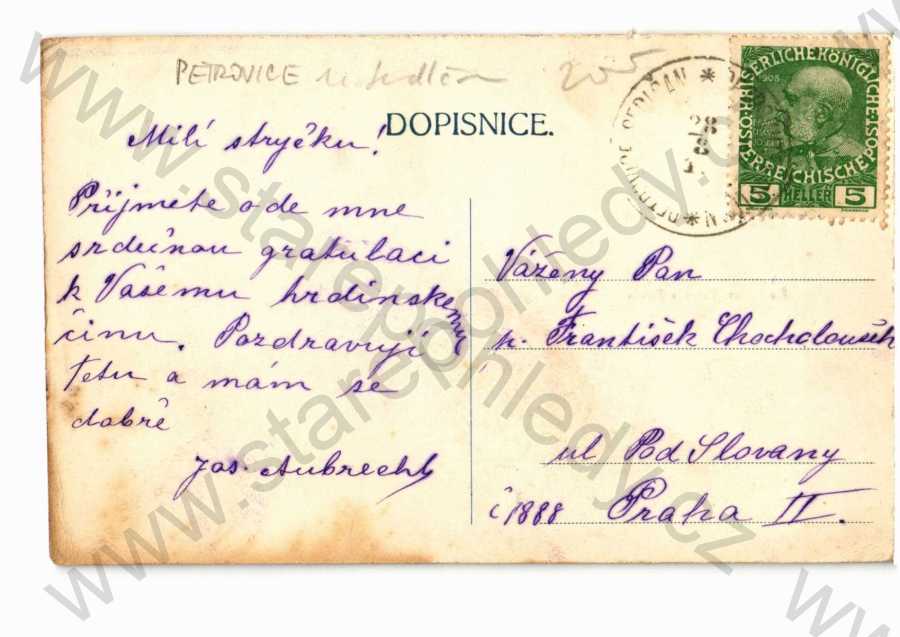 PETROVICE u Sedlčan 205
DOPISNICE.
Milí strýčku!
Přijmete ode mne
srdečnou gratulaci
k Vašemu hrdinskemu
činu. Pozdravuji
tetu a mám se
dobře
Jos. Aubrecht
ÖSTERREICHISCHE POST
KAISERLICHE KÖNIGLICHE
1908
5 HELLER 5
28
8
Vážený Pan
p. František Chocholoušek
ul Pod Slovany
č 1888 Praha II.
www.starepohledy.cz